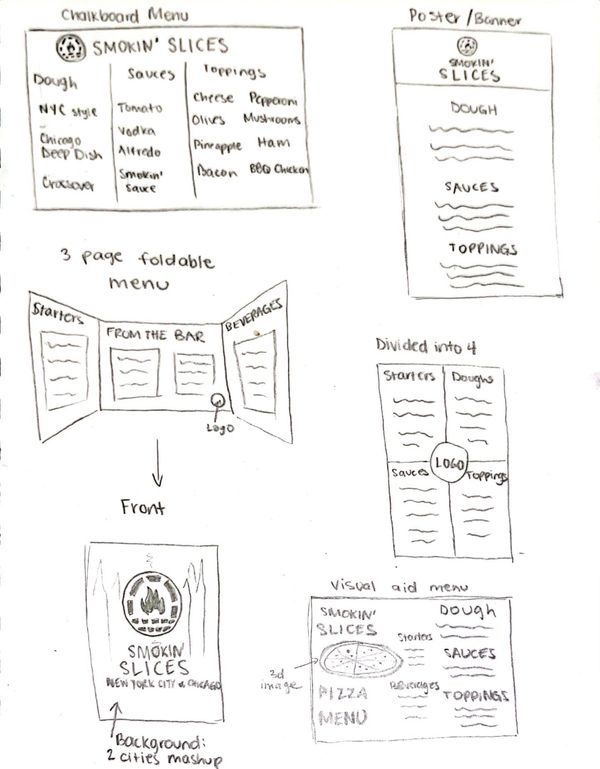 Chalkboard Menu
SMOKIN' SLICES
Dough
NYC style
Chicago
Deep Dish
Crossover
Sauces
Tomato
Vodka
Alfredo
Smokin'
Sauce
Toppings
Cheese Pepperoni
Olives Mushrooms
Pineapple Ham
Bacon BBQ Chicken
Poster/Banner
SMOKIN'
SLICES
DOUGH
SAUCES
TOPPINGS
3 page foldable
menu
Starters
FROM THE BAR
BEVERAGES
Logo
Front
SMOKIN'
SLICES
NEW YORK CITY & CHICAGO
Background:
2 cities mashup
Divided into 4
Starters
Doughs
LOGO
Sauces
Toppings
Visual aid menu
SMOKIN'
SLICES
3d
image
PIZZA
MENU
Starters
Beverages
Dough
SAUCES
TOPPINGS